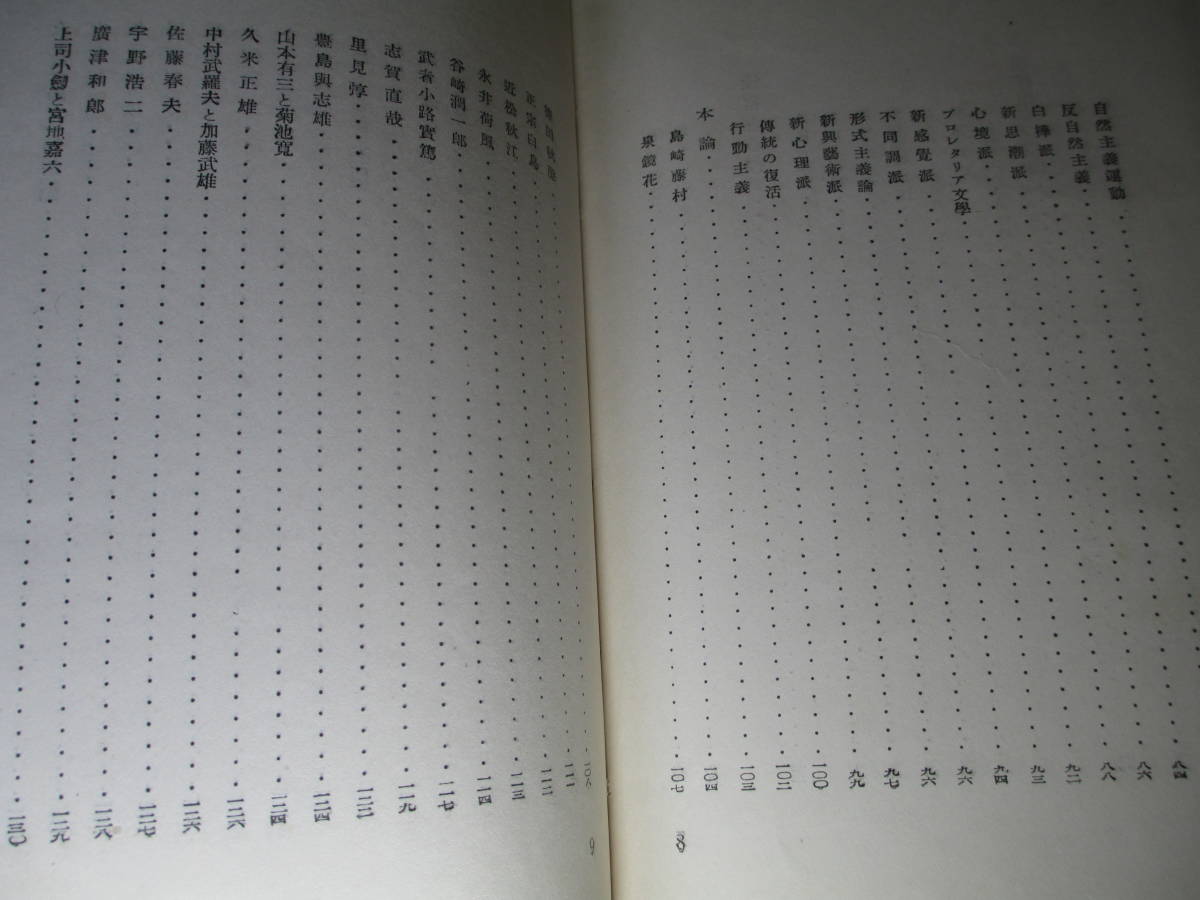 自然主義運動
反自然主義 八四
白樺派 八六
新思潮派 八八
心境派 九二
プロレタリア文學 九三
新感覺派 九四
不同調派 九六
形式主義論 九六
新興藝術派 九七
新心理派 九九
傳統の復活 一〇〇
行動主義 一〇二
本論 一〇三
島崎藤村 一〇四
泉鏡花 一〇七
8
一〇八
正宗白鳥 一一一
近松秋江 一一二
永井荷風 一一三
谷崎潤一郎 一一四
武者小路實篤 一一七
志賀直哉 一一九
里見弴 一二二
豐島與志雄 一二四
山本有三と菊池寬 一二四
久米正雄 一二六
中村武羅夫と加藤武雄 一二六
佐藤春夫 一二七
宇野浩二 一二八
廣津和郎 一二九
上司小劍と宮地嘉六 一三〇
9